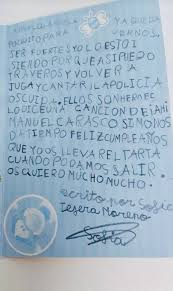 YA QUEDA
POQUITO PARA VERNOS,
SER FUERTES YO LO ESTOI
SIENDO PORQUE ASI PUEDO
TRAVEROS Y VOLVER A
JUGAY CANTAR J LA POLICIA
OS CUIDA. ELLOS SON HEROE
LO DICE UNA CANCION DE
MANUEL CARASCO SI MONOS
DA TIEMPO FELIZ CUMPLEAÑOS
QUE YO OS LLEVARE L TARTA
CUANDO PODAMOS SALIR.
OS QUIERO MUCHO MUCHO.
escrito por Sofia
Tesera Moreno
Sofia